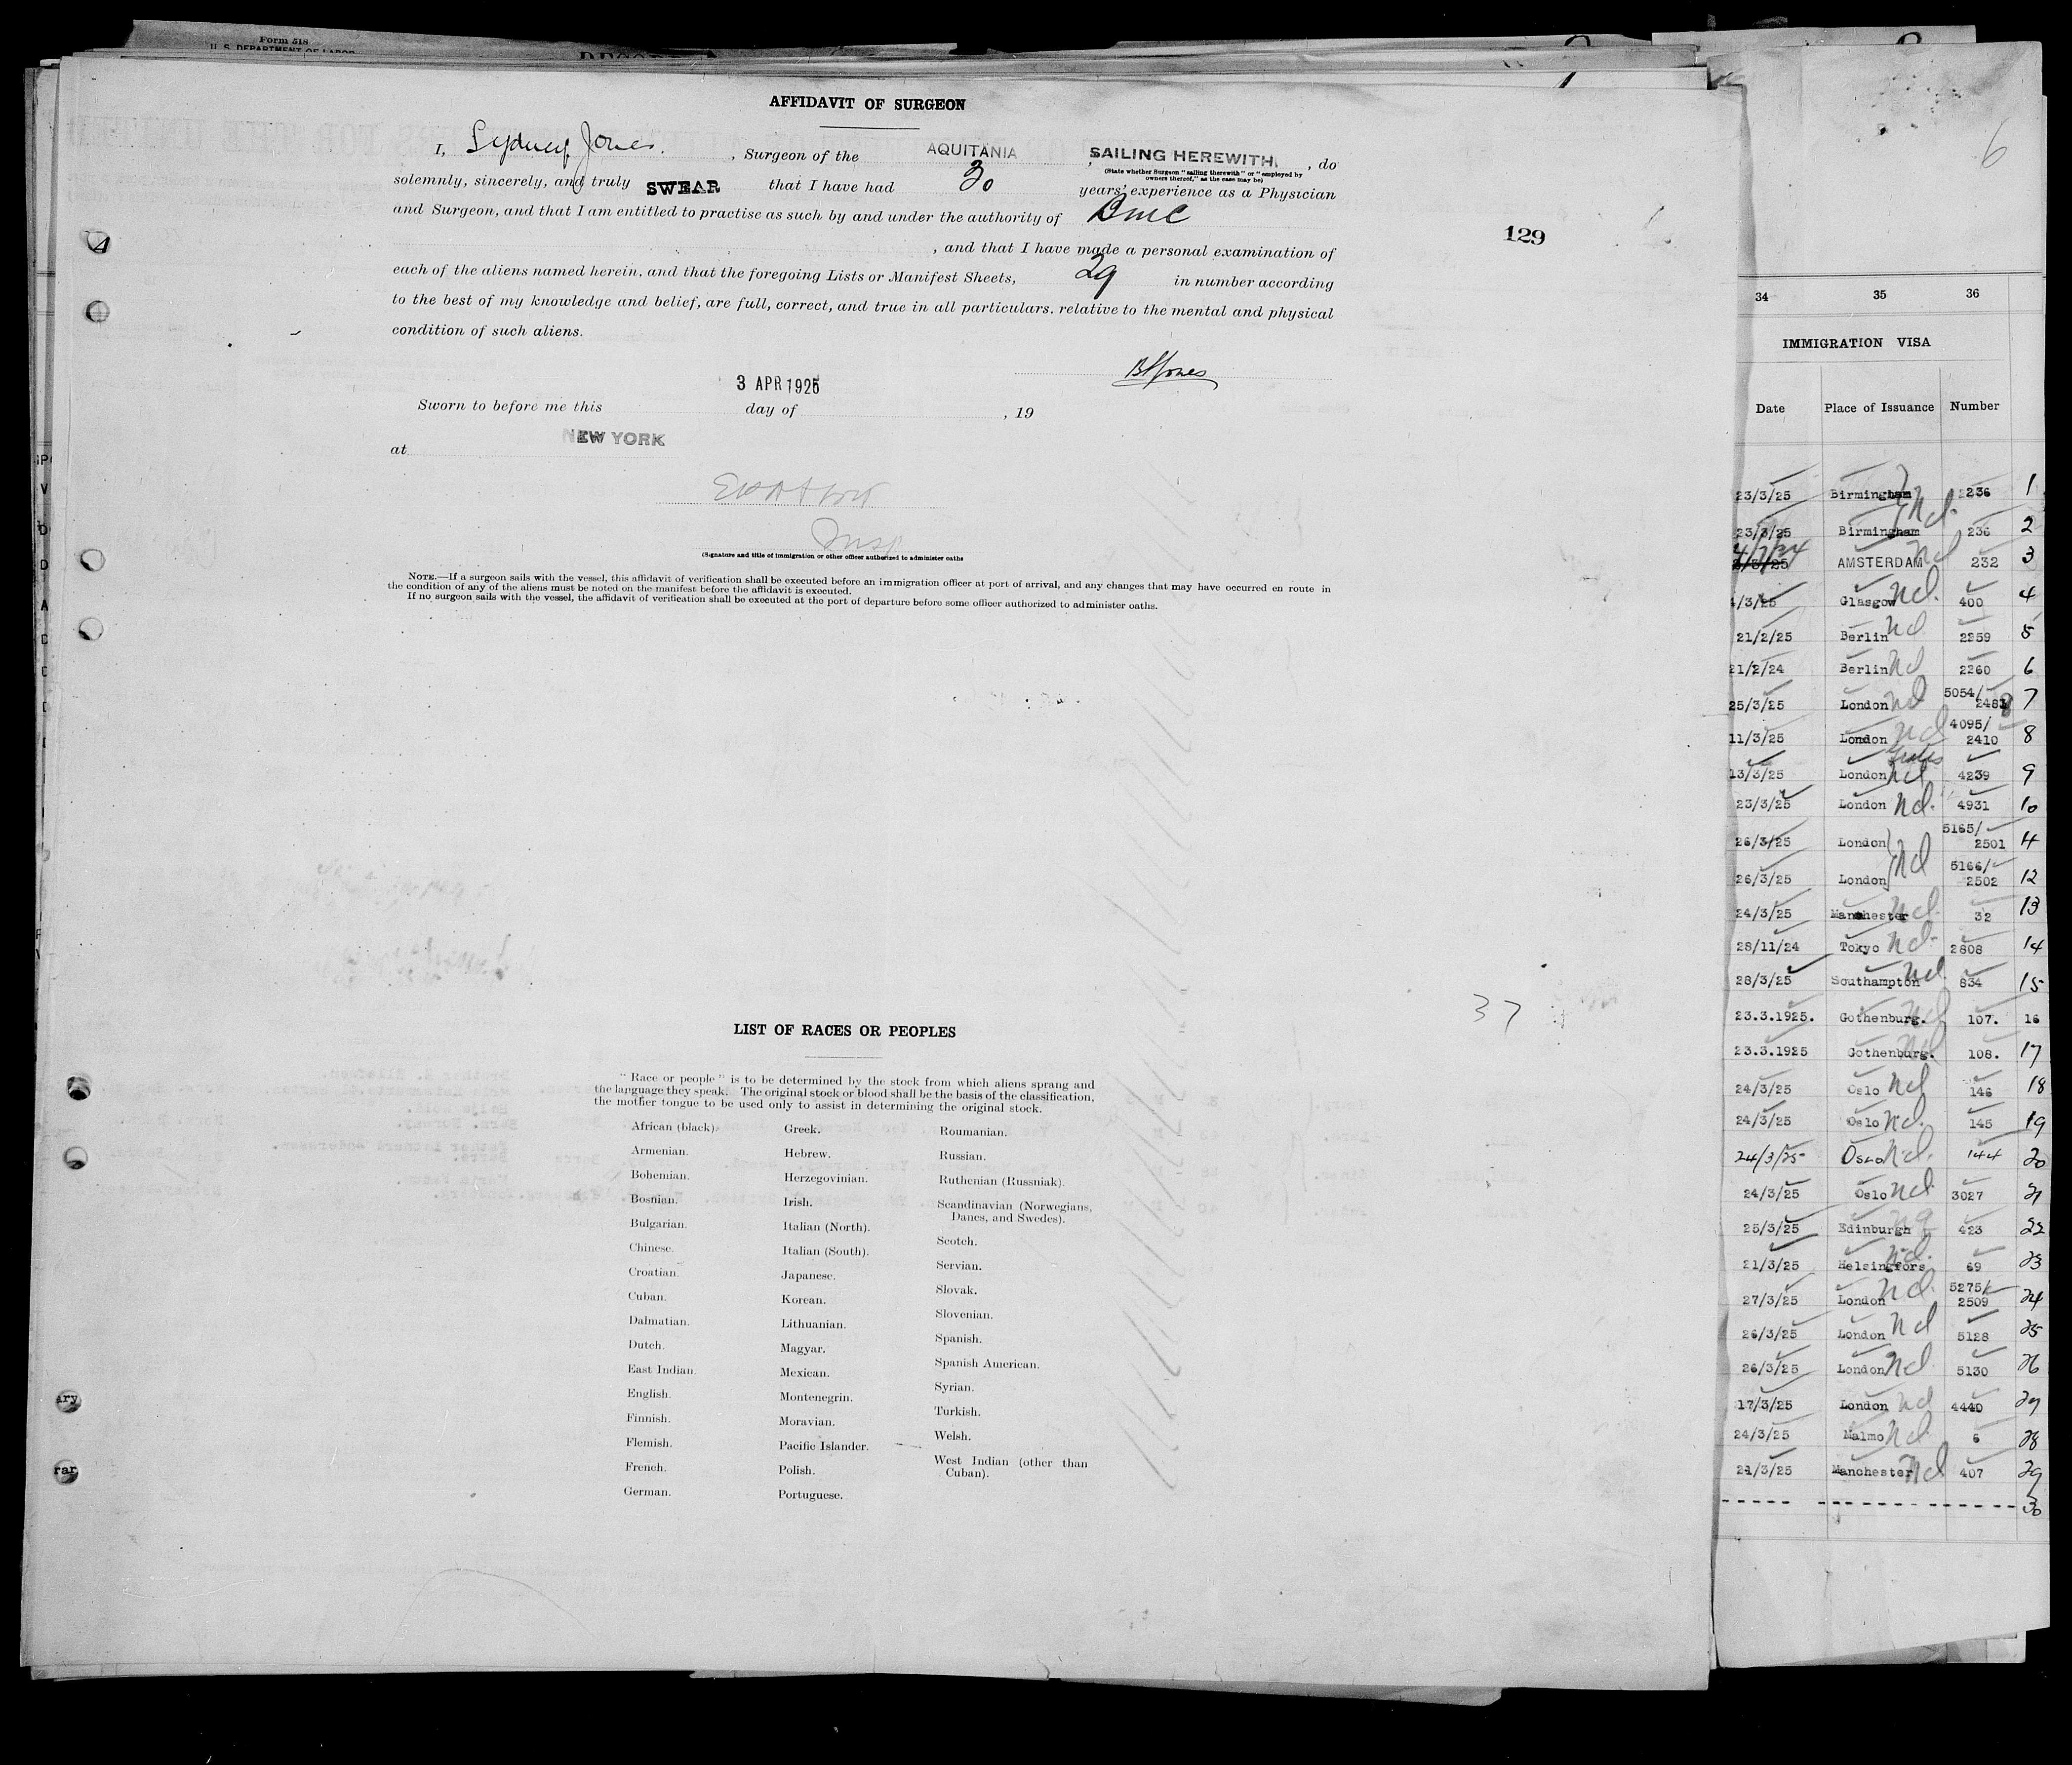 Form 518
U. S. DEPARTMENT OF LABOR
AFFIDAVIT OF SURGEON
I, Sydney Jones. , Surgeon of the AQUITANIA , SAILING HEREWITH , do
(State whether Surgeon "sailing therewith" or "employed by
owners thereof," as the case may be)
solemnly, sincerely, and truly SWEAR that I have had 30 years' experience as a Physician
and Surgeon, and that I am entitled to practise as such by and under the authority of
, and that I have made a personal examination of
each of the aliens named herein, and that the foregoing Lists or Manifest Sheets, 29 in number according
to the best of my knowledge and belief, are full, correct, and true in all particulars. relative to the mental and physical
condition of such aliens.
Jones
3 APR 1925
Sworn to before me this day of , 19
at NEW YORK
Insp
(Signature and title of immigration or other officer authorized to administer oaths
NOTE.—If a surgeon sails with the vessel, this affidavit of verification shall be executed before an immigration officer at port of arrival, and any changes that may have occurred en route in
the condition of any of the aliens must be noted on the manifest before the affidavit is executed.
If no surgeon sails with the vessel, the affidavit of verification shall be executed at the port of departure before some officer authorized to administer oaths.
129
37
LIST OF RACES OR PEOPLES
"Race or people" is to be determined by the stock from which aliens sprang and
the language they speak. The original stock or blood shall be the basis of the classification,
the mother tongue to be used only to assist in determining the original stock.
African (black).
Armenian.
Bohemian.
Bosnian.
Bulgarian.
Chinese.
Croatian.
Cuban.
Dalmatian.
Dutch.
East Indian.
English.
Finnish.
Flemish.
French.
German.
Greek.
Hebrew.
Herzegovinian.
Irish.
Italian (North).
Italian (South).
Japanese.
Korean.
Lithuanian.
Magyar.
Mexican.
Montenegrin.
Moravian.
Pacific Islander.
Polish.
Portuguese.
Roumanian.
Russian.
Ruthenian (Russniak).
Scandinavian (Norwegians,
Danes, and Swedes).
Scotch.
Servian.
Slovak.
Slovenian.
Spanish.
Spanish American.
Syrian.
Turkish.
Welsh.
West Indian (other than
Cuban).
6
34 35 36
IMMIGRATION VISA
Date Place of Issuance Number
23/3/25 Birmingham 236 1
23/3/25 Birmingham nd. 236 2
AMSTERDAM nd 232 3
/3/25 Glasgow nd. 400 4
21/2/25 Berlin nd 2259 5
21/2/24 Berlin nd 2260 6
25/3/25 London nd 5054/ 248 7
11/3/25 London nd 4095/ 2410 8
13/3/25 London nd 4239 9
23/3/25 London nd. 4931 10
26/3/25 London 5165/ 2501 11
26/3/25 London nd 5166/ 2502 12
24/3/25 Manchester nd. 32 13
28/11/24 Tokyo nd. 2808 14
28/3/25 Southampton nd. 834 15
23.3.1925. Gothenburg. nd 107. 16
23.3.1925 Gothenburg. nd 108. 17
24/3/25 Oslo nd 146 18
24/3/25 Oslo nd. 145 19
24/3/25 Oslo nd. 144 20
24/3/25 Oslo nd. 3027 21
25/3/25 Edinburgh 423 22
21/3/25 Helsingfors nd. 69 23
27/3/25 London nd. 5275/ 2509 24
26/3/25 London nd 5128 25
26/3/25 London nd 5130 26
17/3/25 London nd 4440 27
24/3/25 Malmo nd. 6 28
24/3/25 Manchester nd 407 29
30